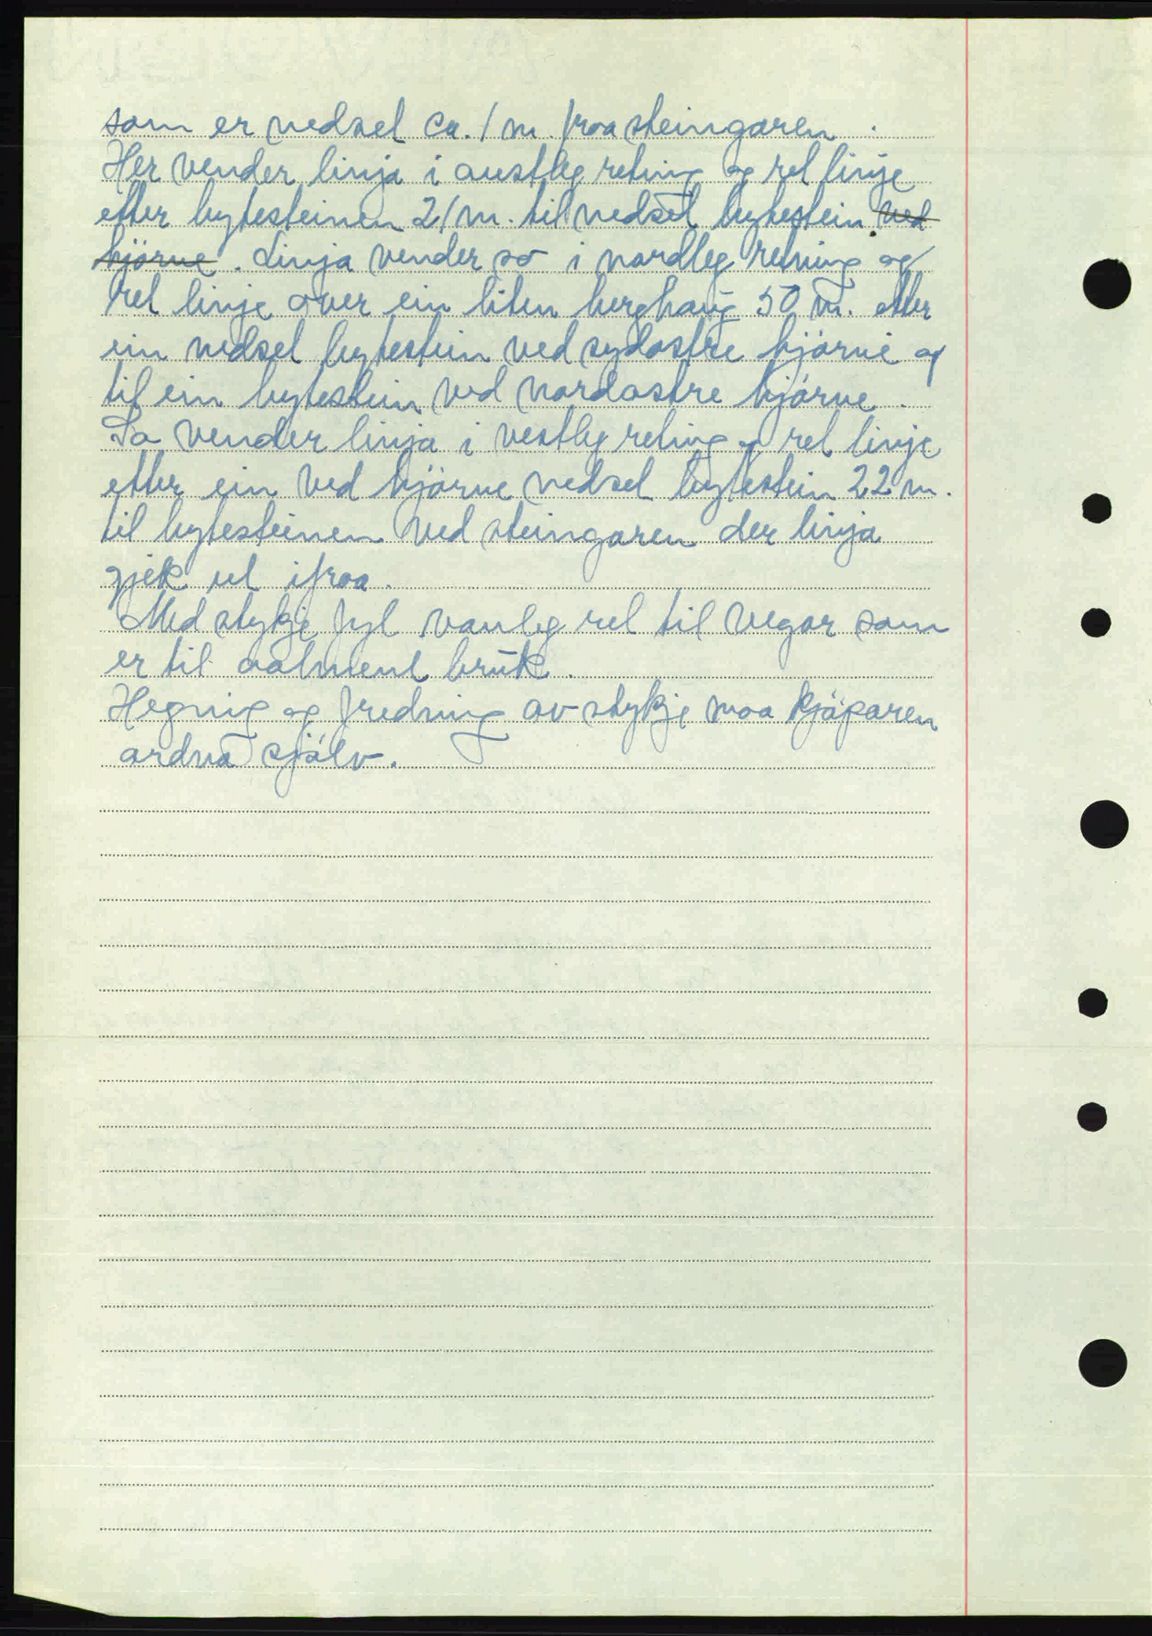 som er nedset ca. 1 m. fraa steingaren.
Her vender linja i austleg retning og ret linje
etter bytesteinen 21 m. til nedset bytestein ved
hjörne. Linja vender so i nordleg retning og
ret linje over ein liten berghaug 50 m. etter
ein nedset bytestein ved sydöstre hjörne og
til ein bytestein ved nordöstre hjörne.
So vender linja i vestleg retning og ret linje
etter ein ved hjörne nedset bytestein 22 m.
til bytesteinen ved steingaren der linja
gjek ut ifraa.
Med stykje fyl vanleg ret til vegar som
er til aalment bruk.
Hegning og fredning av stykje maa kjöparen
ordna sjölv.